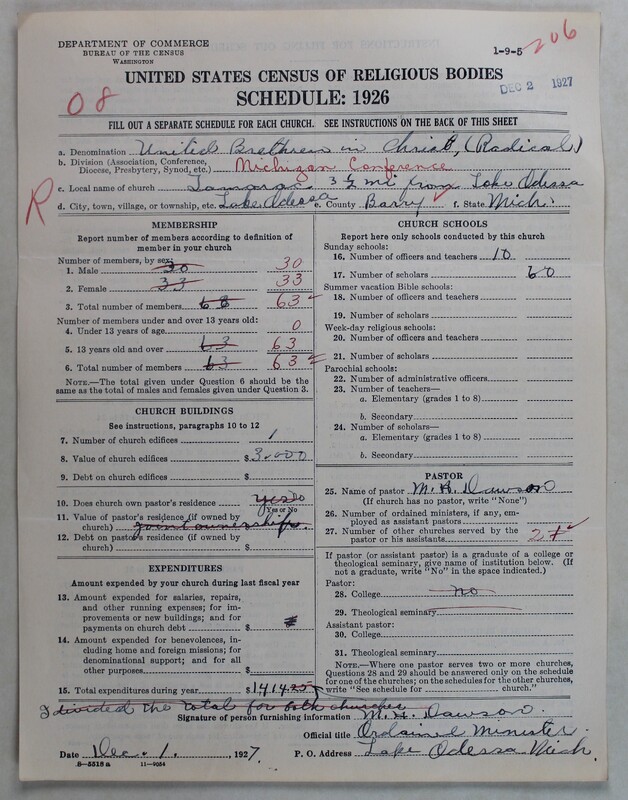 DEPARTMENT OF COMMERCE
BUREAU OF THE CENSUS
WASHINGTON
1-9-5
206
08
DEC 2 1927
UNITED STATES CENSUS OF RELIGIOUS BODIES
SCHEDULE: 1926
FILL OUT A SEPARATE SCHEDULE FOR EACH CHURCH. SEE INSTRUCTIONS ON THE BACK OF THIS SHEET
a. Denomination United Brethren in Christ, (Radical)
b. Division (Association, Conference, Diocese, Presbytery, Synod, etc.) Michigan Conference
c. Local name of church Tamarac 3 ½ mi from Lake Odessa
R
d. City, town, village, or township, etc. Lake Odessa e. County Barry f. State Mich.
MEMBERSHIP
Report number of members according to definition of
member in your church
Number of members, by sex:
1. Male 30 30
2. Female 33 33
3. Total number of members 63
Number of members under and over 13 years old:
4. Under 13 years of age 0
5. 13 years old and over 63 63
6. Total number of members 63 63
NOTE.—The total given under Question 6 should be
the same as the total of males and females given under Question 3.
CHURCH BUILDINGS
See instructions, paragraphs 10 to 12
7. Number of church edifices 1
8. Value of church edifices $3,000
9. Debt on church edifices $
10. Does church own pastor's residence yes
Yes or No
11. Value of pastor's residence (if owned by
church) joint ownership.
12. Debt on pastor's residence (if owned by
church) $
EXPENDITURES
Amount expended by your church during last fiscal year
13. Amount expended for salaries, repairs,
and other running expenses; for im-
provements or new buildings; and for
payments on church debt $
14. Amount expended for benevolences, in-
cluding home and foreign missions; for
denominational support; and for all
other purposes $
15. Total expenditures during year $1414.25
I divided the total for both churches
CHURCH SCHOOLS
Report here only schools conducted by this church
Sunday schools:
16. Number of officers and teachers 10
17. Number of scholars 60
Summer vacation Bible schools:
18. Number of officers and teachers
19. Number of scholars
Week-day religious schools:
20. Number of officers and teachers
21. Number of scholars
Parochial schools:
22. Number of administrative officers
23. Number of teachers—
a. Elementary (grades 1 to 8)
b. Secondary
24. Number of scholars—
a. Elementary (grades 1 to 8)
b. Secondary
PASTOR
25. Name of pastor M. H. Dawson
(If church has no pastor, write "None")
26. Number of ordained ministers, if any, em-
ployed as assistant pastors
27. Number of other churches served by the
pastor or his assistants 2
If pastor (or assistant pastor) is a graduate of a college or
theological seminary, give name of institution below. (If
not a graduate, write "No" in the space indicated.)
Pastor:
28. College no
29. Theological seminary
Assistant pastor:
30. College
31. Theological seminary
NOTE.—Where one pastor serves two or more churches,
Questions 28 and 29 should be answered only on the schedule
for one of the churches; on the schedules for the other churches,
write "See schedule for church."
Signature of person furnishing information M. H. Dawson.
Official title Ordained Minister.
Date Dec. 1. 1927. P. O. Address Lake Odessa Mich
8-5518a 11-9054